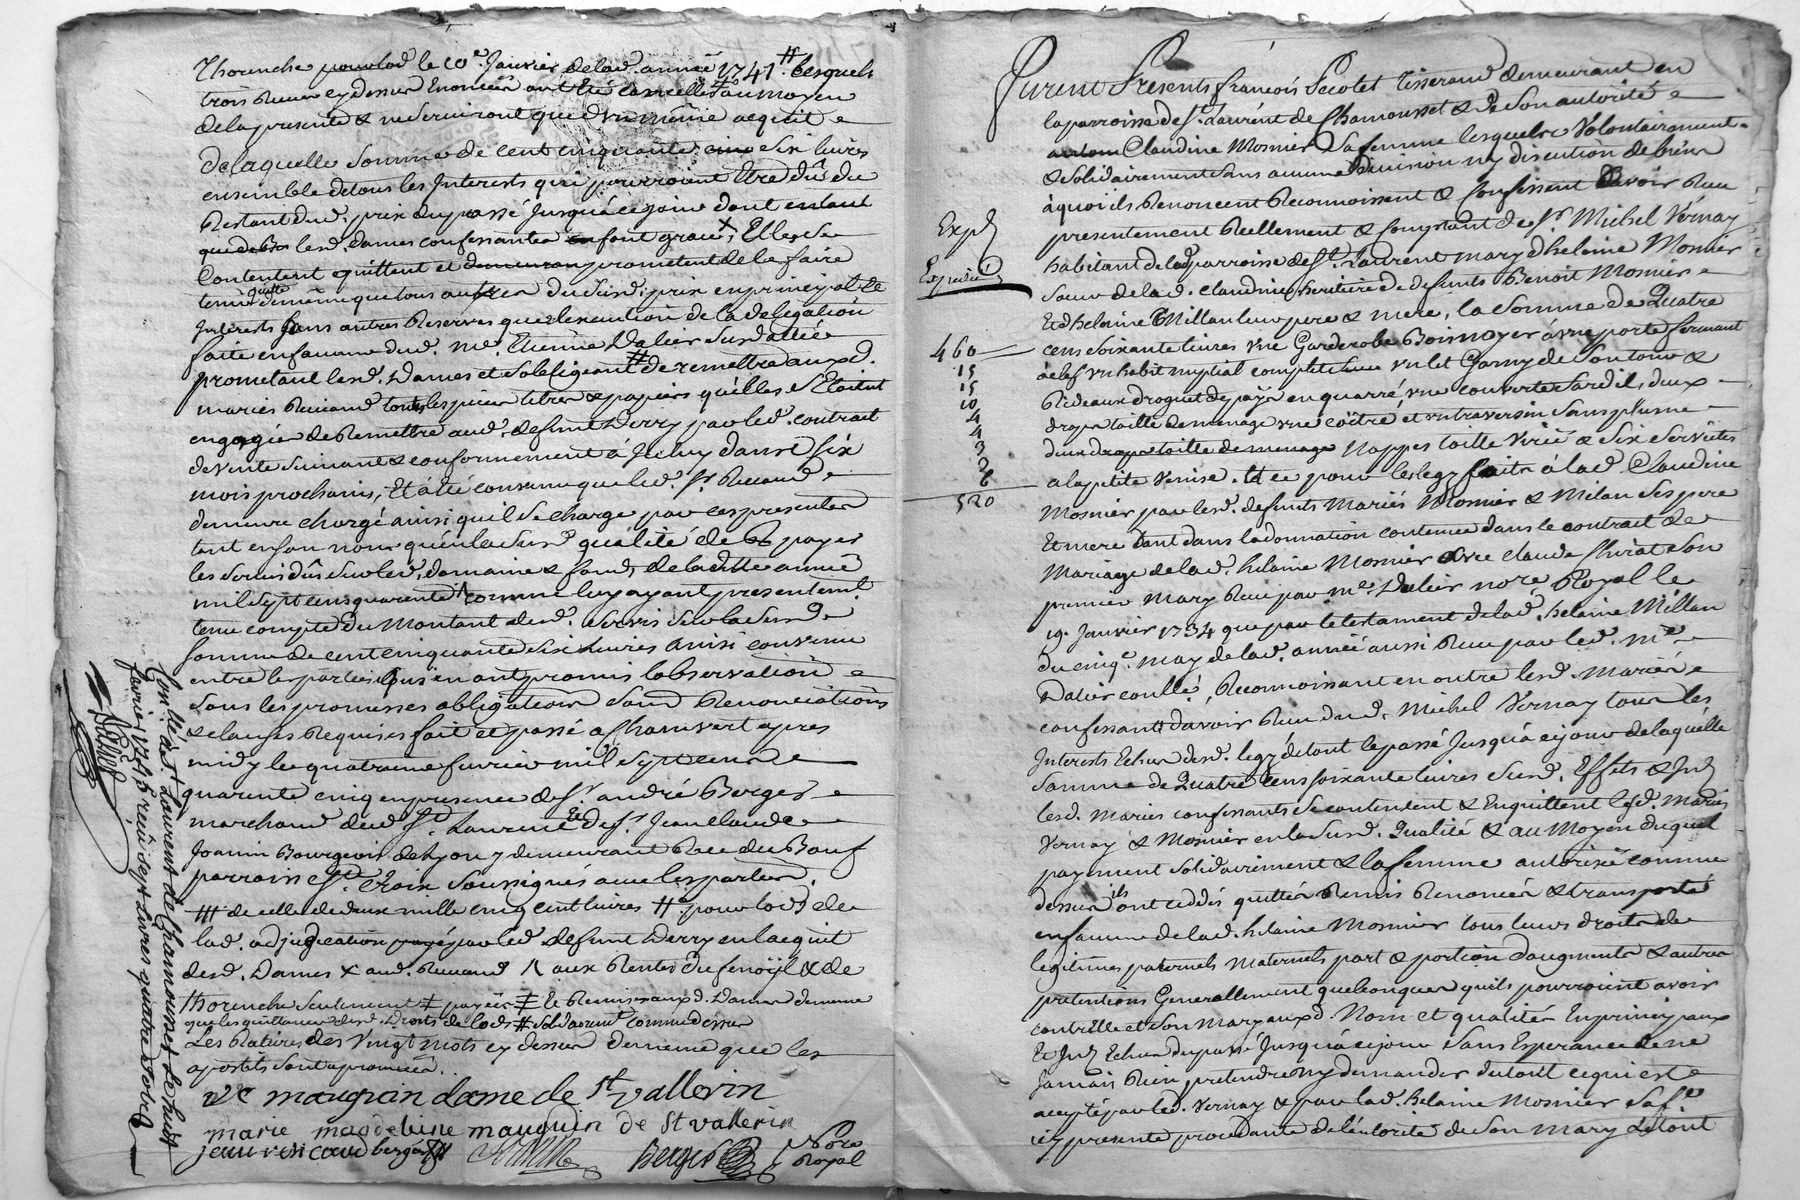 Thorenche pour lod le 10e. Janvier de lad. année 1741 # lesquels
trois Reçus cy dessus Enoncés ont Eté cancellés au moyen
de la presente & ne serviront que d'un même acquit
De laquelle Somme de cent cinquante six livres
ensemble de tous les Interests qui pourroient Etre dûs du
Restant dud. prix du passé Jusqu'à ce jour dont entant
que de Bon lesd. dames confessantes en font grace, Elles Se
Contentent quittent et prometent de le faire
tenir quitte de même que tous autres du Susd. prix en principal &
Interests sans autres Reserves que l'execution de la delegation
faite en faveur dud. Me. Etienne Dalier Susd allié
prometant lesd. Dames et Soblligeant # de remettre auxd.
mariés Renaud toutes les pieces titres & papiers qu'elles S'Etoient
engagées de Remettre aud. defunt Derry par led. contrait
de vente Suivant & conformement à Iceluy dans Six
mois prochains, Et a été convenu que led. Sr. Renaud
demeure chargé ainsi qu'il Se charge par ces presentes
tant en son nom qu'en la Susd. qualité de payer
les Servis dûs Sur led. domaine & fonds de laditte année
mil Sept cens quarente comme luy ayant presentement
tenu compte du Montant desd. Servis Sur la Susd.
Somme de cent cinquante Six Livres ainsi convenu
entre les parties qui en ont promis l'observation
Sous les promesses obligations Soumd Renonciations
& clauses Requises fait et passé a Chamvert apres
midy le quatrieme fevrier mil Sept cens
quarente cinq en presence de Sr. andré Berger
marchand dud St. Laurent & de Sr. Jean claude
Joanin Bourgeois de Lyon y demeurant Rue du Bœuf
parroisse Ste. Croix Soussignés avec les parties.
de celle de deux mille cinq cent livres # pour lods de
lad. adjudication payé par led defunt Derry en lacquit
desd. Dames X aud. Renaud /\ aux Rentes du fenoÿl & de
Thorenche Seulement ‡ payées ‡ Et Remises auxd. Dames demême
que les quittances desd. Droits de lods # Solidairemt. comme dessus
Les Ratures des Vingt mots cy dessus de même que les
apostils Sont approuvés.
ve mauguin dame de St vallerin
marie magdeleine mauguin de St vallerin
jean renaud berger Berger Nore
Royal
Conllé à St. Laurent de Chamousset Le huit
fevrier 1745 reçû sept Livres quatre sols
Dalier
Furent Presents françois Pecolet Tisserand demeurant en
la parroisse de St. Laurent de Chamousset & De Son autorité
Claudine Mosnier Sa femme lesquels Volontairement
& Solidairement Sans aucune Division ny discution de biens
à quoi ils Renoncent Reconnoissent & Confessent Davoir Reçu
presentement Reellement & Comptant de Sr. Michel Vernay
habitant de lad. parroisse de St. Laurent mary d'helaine Mosnier
Sœur de lad. Claudine heritiere de defunts Benoit Mosnier
Et d'helaine Millan leurs pere & mere, la Somme de Quatre
cens Soixante livres une Garderobe Bois noyer à une porte fermant
à clef un habit nuptial complet un lit Garny de Son tour &
Rideaux droguet de païs en quarré une couverte Sardis, deux
draps toille de menage une coitre et un traversin Sans plume
deux nappes toille de menage Nappes toille Virée & Six Serviettes
a la petite Venise. Et ce pour les legs faits à lad. Claudine
Mosnier par lesd. defunts Mariés Mosnier & Milan Ses pere
Et mere tant dans la donnation contenue dans le contrait de
Mariage de lad. helaine Mosnier avec Claude flurat Son
premier Mary Reçu par Me. Dalier nore Royal le
19. Janvier 1734 que par le testament de lad. helaine Millan
du cinqe. may de lad. année aussi Reçu par led. Me.
Dalier conllé, Reconnoissant en outre lesd. Mariés
confessants d'avoir Reçu dud. Michel Vernay tous les
Interests Echus desd. legs de tout le passé Jusqu'à ce jour de laquelle
Somme de Quatre Cens soixante livres Susd. Effets & Ints
lesd. Mariés confessants Se contentent & Enquittent lesd. Mariés
Vernay & Mosnier en la Susd. Qualité & au Moyen duquel
payement Solidairement & la femme autorisée comme
dessus ils ont ceddé quitté Remis Renoncé & transporté
en faveur de lad. helaine Mosnier tous leurs droits de
legitimes paternels Maternels part & portion d'augments & autres
pretentions Generallement quelconques qu'ils pourroient avoir
contr'elle et Son Mary auxd. Nom et qualités En principaux
Et Ints Echus du passé Jusqu'à ce jour Sans Esperance de ne
Jamais Rien pretendre ny demander du tout ce qui est
accepté par led. Vernay & par lad. helaine Mosnier Sa fe.
icy presente procedante de l'autorité de Son Mary Le tout
Expd
Expediée
460
15
15
10
4
4
3
3
6
520